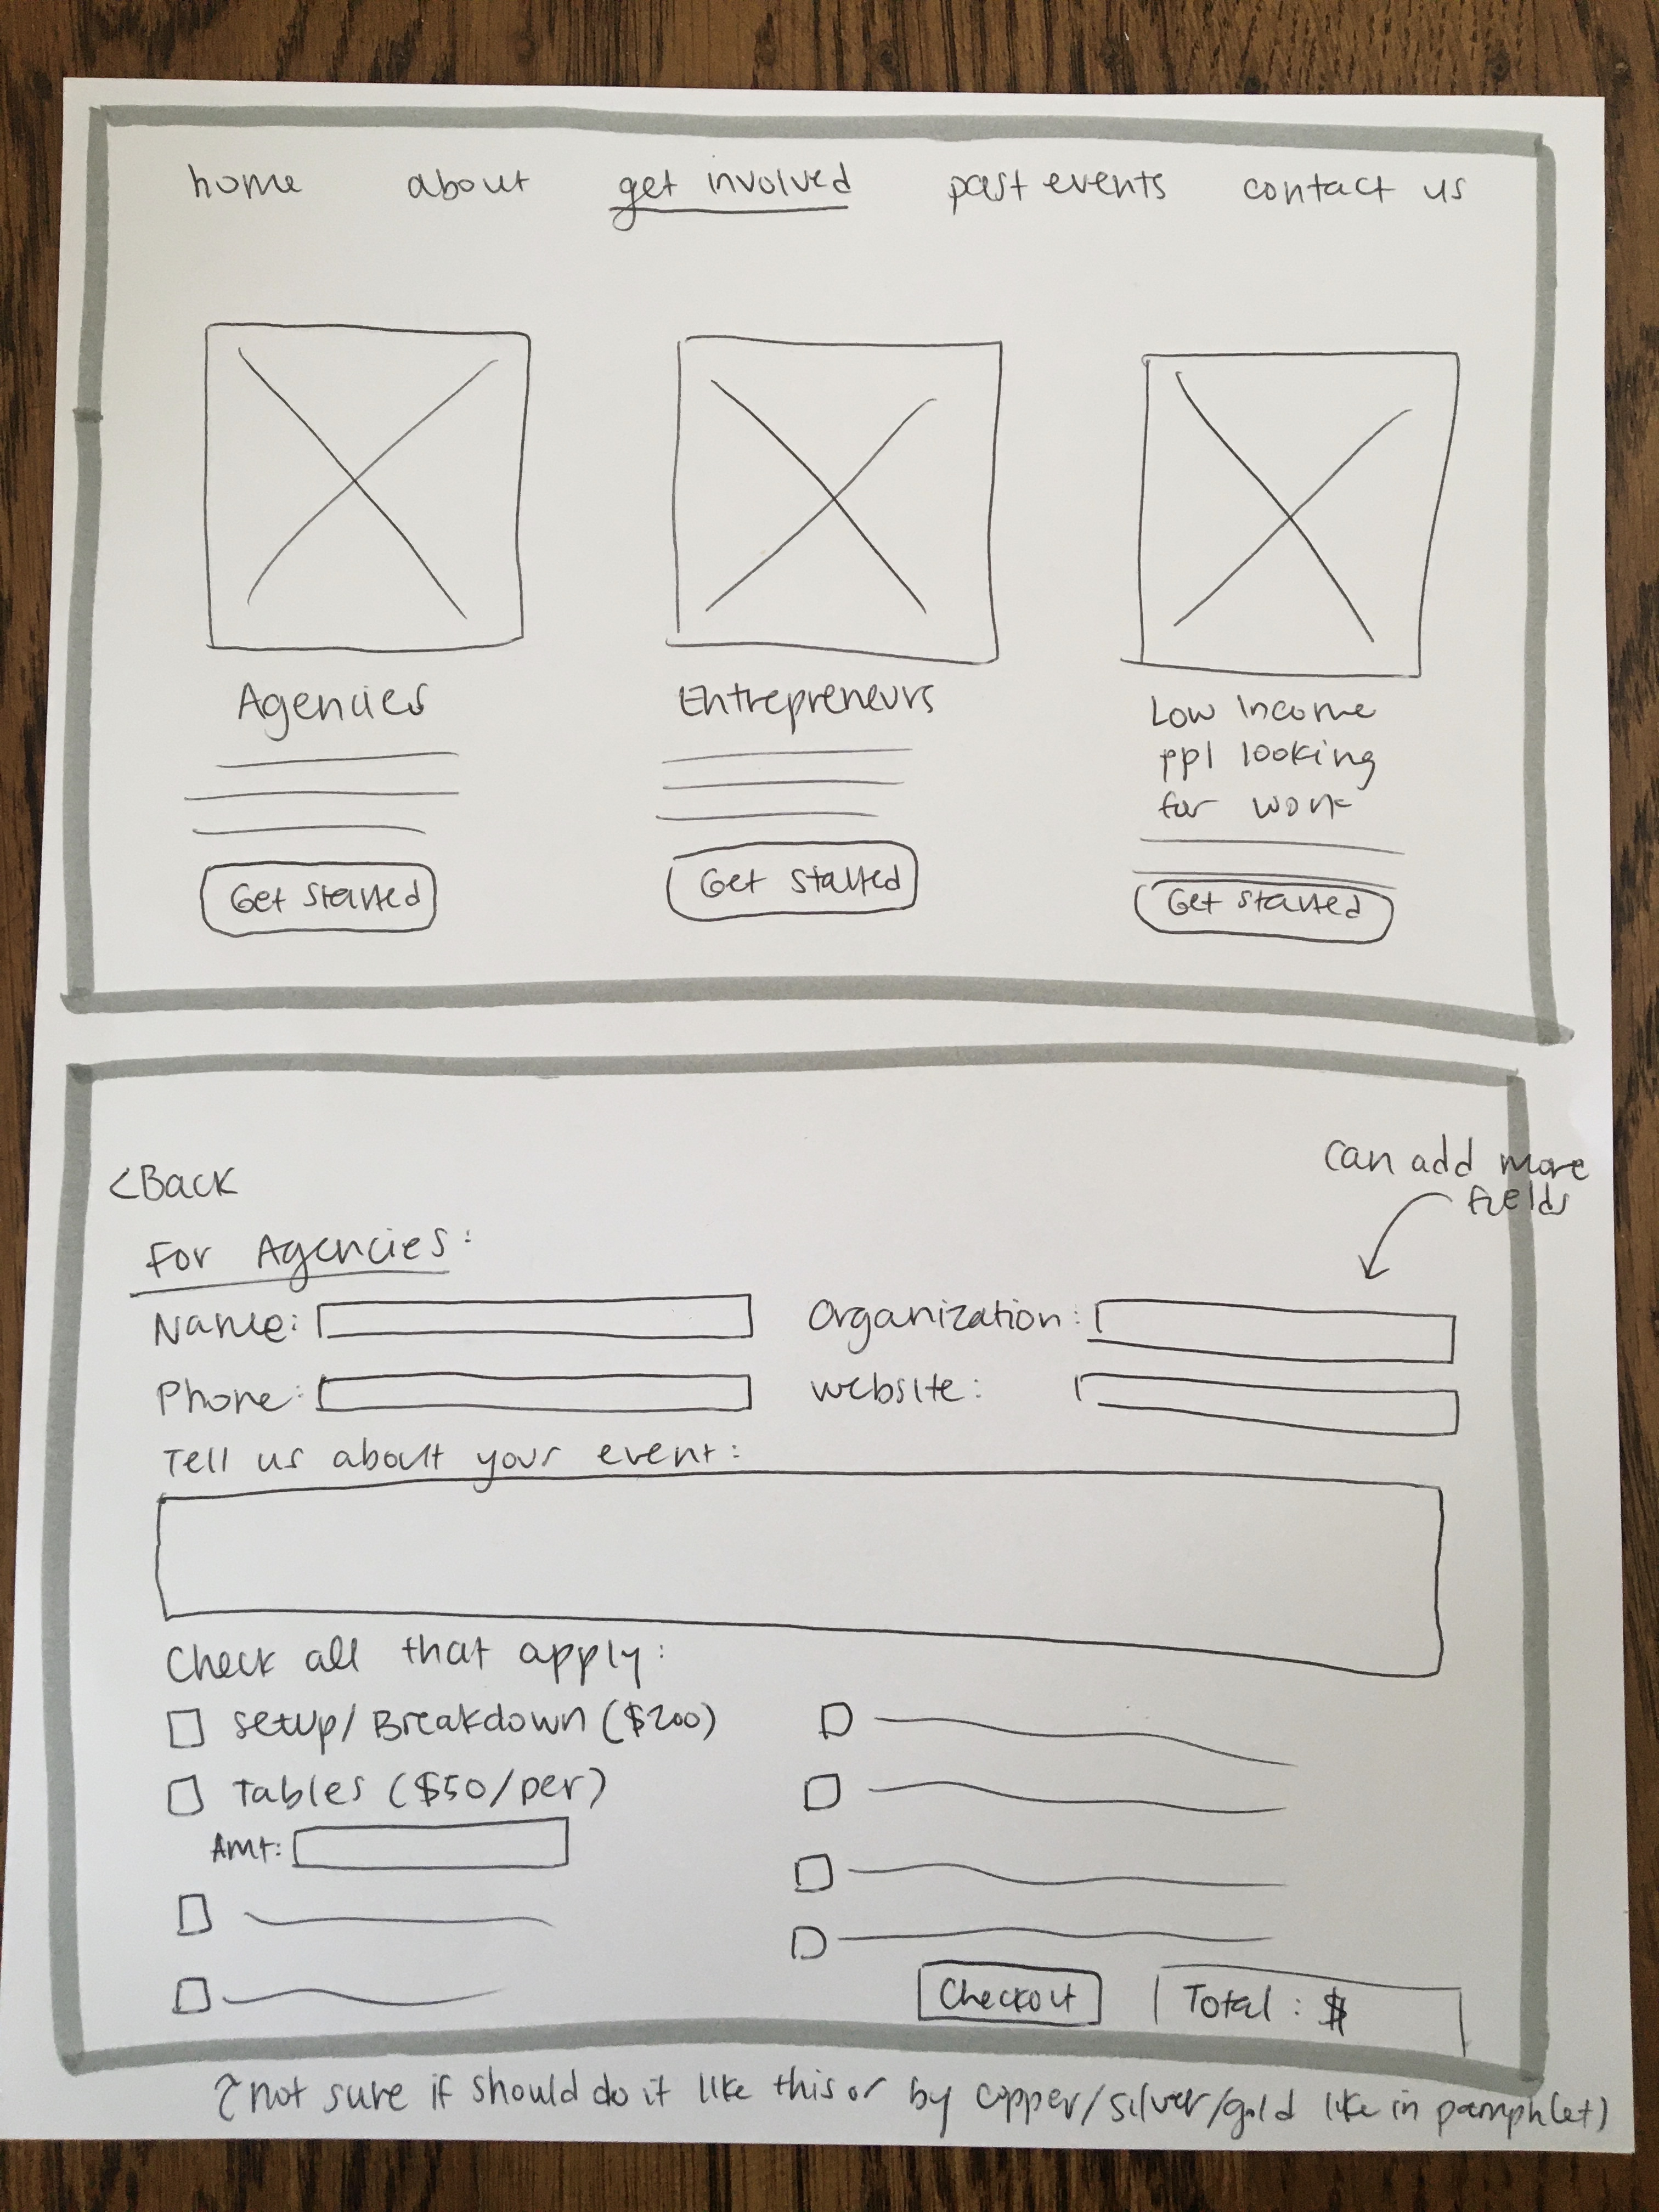 home about get involved past events contact us
Agencies Entrepreneurs Low Income
ppl looking
for work
Get started Get started Get started
<Back
can add more
fields
For Agencies:
Name: Organization:
Phone: website:
Tell us about your event:
Check all that apply:
setup/Breakdown ($200)
Tables ($50/per)
Amt:
Checkout Total: $
not sure if should do it like this or by copper/silver/gold like in pamphlet)